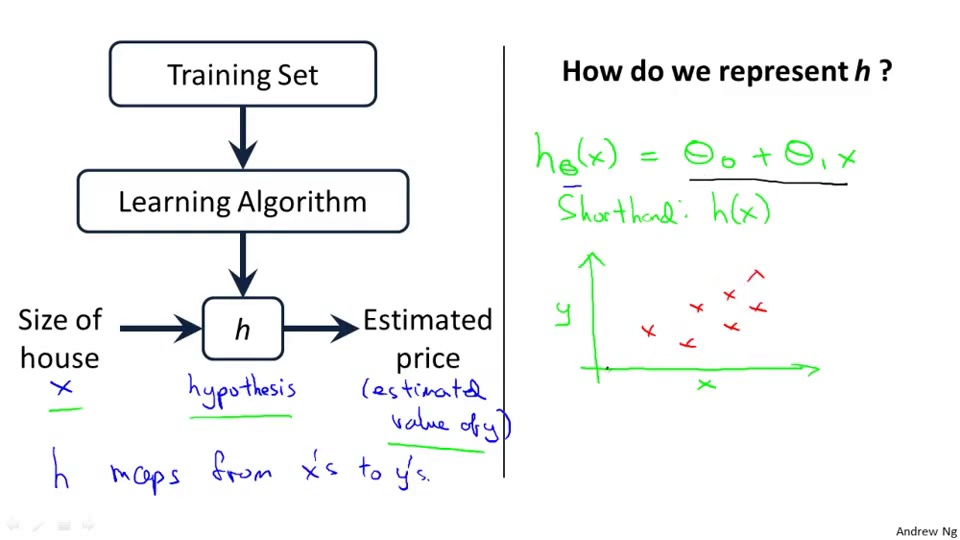 Training Set
Learning Algorithm
Size of house
h
Estimated price
x
hypothesis
(estimated value of y)
h maps from x's to y's.
How do we represent h ?
hθ(x) = θ₀ + θ₁x
Shorthand: h(x)
y
x
Andrew Ng